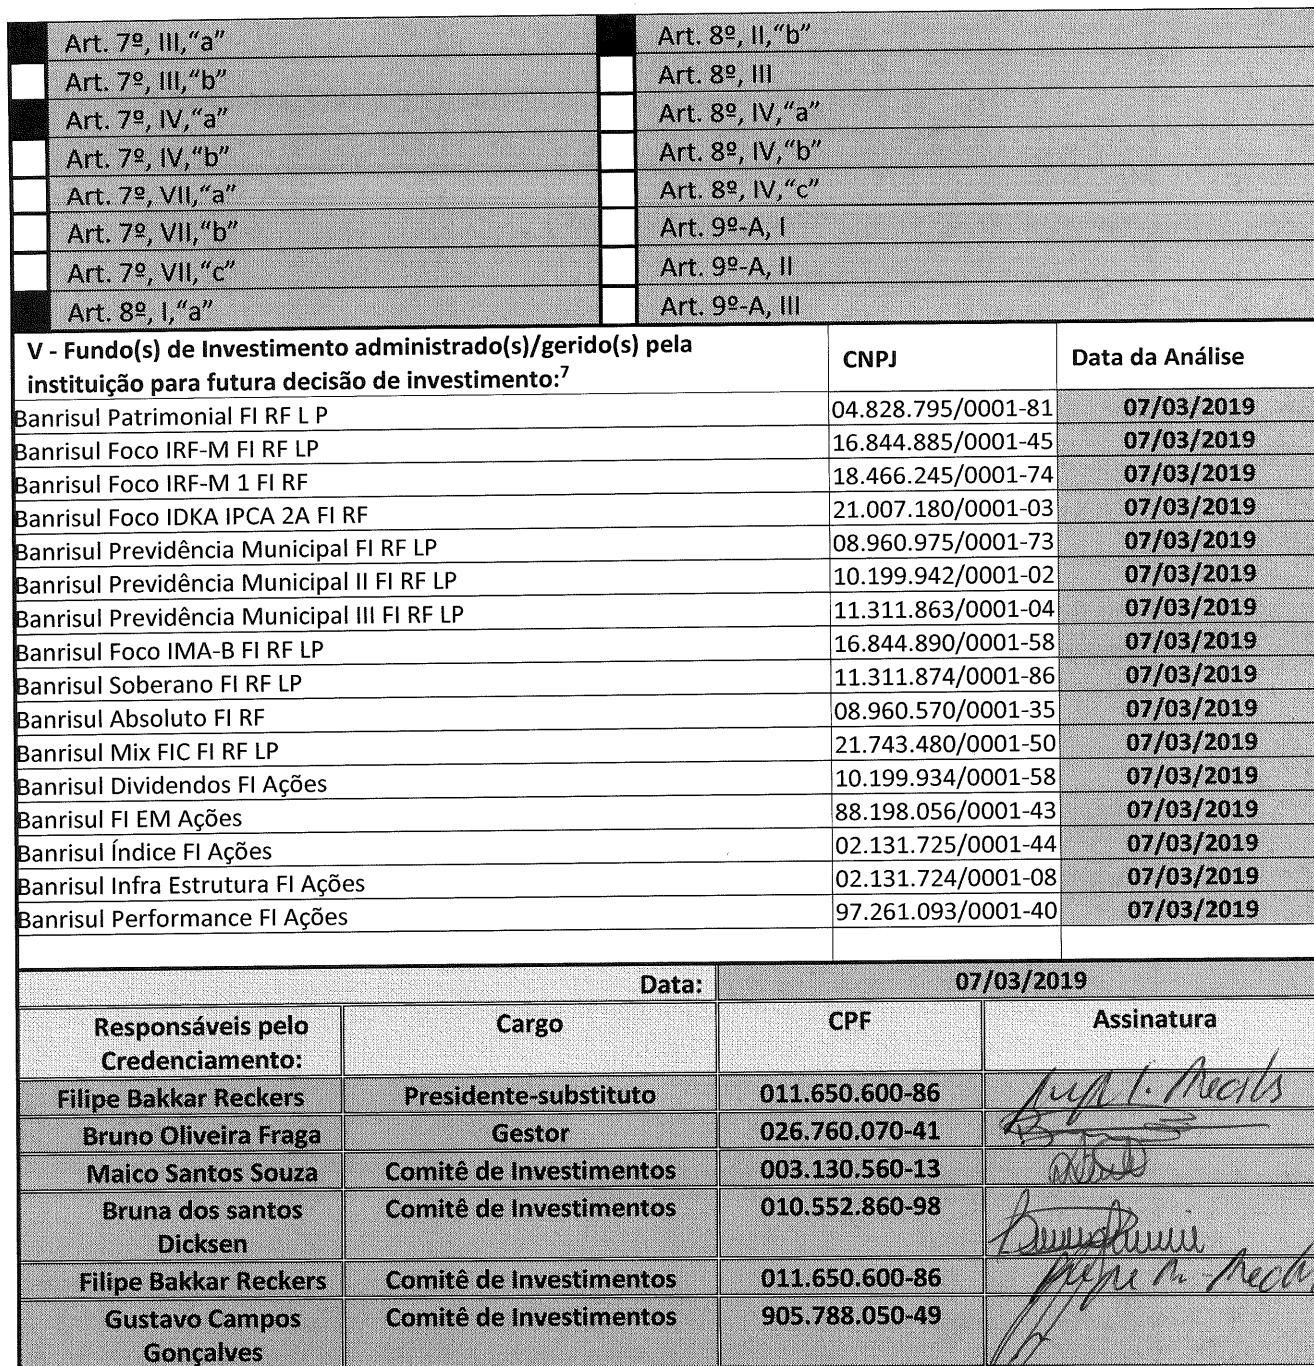 Art. 7º, III,“a” Art. 8º, II,“b”
Art. 7º, III,“b” Art. 8º, III
Art. 7º, IV,“a” Art. 8º, IV,“a”
Art. 7º, IV,“b” Art. 8º, IV,“b”
Art. 7º, VII,“a” Art. 8º, IV,“c”
Art. 7º, VII,“b” Art. 9º-A, I
Art. 7º, VII,“c” Art. 9º-A, II
Art. 8º, I,“a” Art. 9º-A, III
V - Fundo(s) de Investimento administrado(s)/gerido(s) pela
instituição para futura decisão de investimento:7 CNPJ Data da Análise
Banrisul Patrimonial FI RF L P 04.828.795/0001-81 07/03/2019
Banrisul Foco IRF-M FI RF LP 16.844.885/0001-45 07/03/2019
Banrisul Foco IRF-M 1 FI RF 18.466.245/0001-74 07/03/2019
Banrisul Foco IDKA IPCA 2A FI RF 21.007.180/0001-03 07/03/2019
Banrisul Previdência Municipal FI RF LP 08.960.975/0001-73 07/03/2019
Banrisul Previdência Municipal II FI RF LP 10.199.942/0001-02 07/03/2019
Banrisul Previdência Municipal III FI RF LP 11.311.863/0001-04 07/03/2019
Banrisul Foco IMA-B FI RF LP 16.844.890/0001-58 07/03/2019
Banrisul Soberano FI RF LP 11.311.874/0001-86 07/03/2019
Banrisul Absoluto FI RF 08.960.570/0001-35 07/03/2019
Banrisul Mix FIC FI RF LP 21.743.480/0001-50 07/03/2019
Banrisul Dividendos FI Ações 10.199.934/0001-58 07/03/2019
Banrisul FI EM Ações 88.198.056/0001-43 07/03/2019
Banrisul Índice FI Ações 02.131.725/0001-44 07/03/2019
Banrisul Infra Estrutura FI Ações 02.131.724/0001-08 07/03/2019
Banrisul Performance FI Ações 97.261.093/0001-40 07/03/2019
Data: 07/03/2019
Responsáveis pelo Cargo CPF Assinatura
Credenciamento:
Filipe Bakkar Reckers Presidente-substituto 011.650.600-86
Bruno Oliveira Fraga Gestor 026.760.070-41
Maico Santos Souza Comitê de Investimentos 003.130.560-13
Bruna dos santos Comitê de Investimentos 010.552.860-98
Dicksen
Filipe Bakkar Reckers Comitê de Investimentos 011.650.600-86
Gustavo Campos Comitê de Investimentos 905.788.050-49
Gonçalves